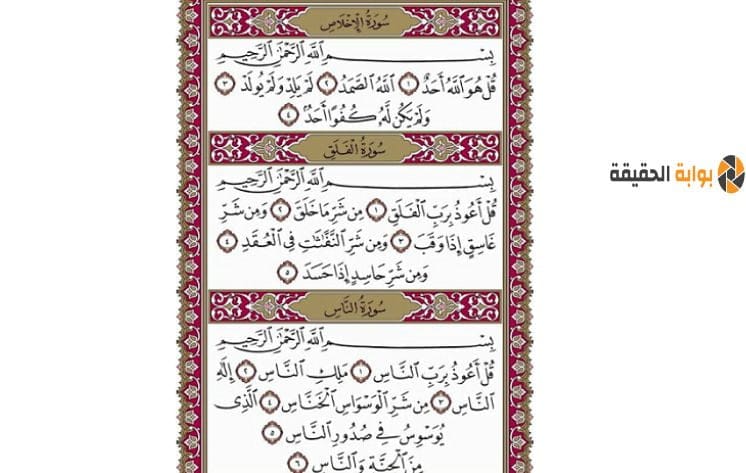 سُورَةُ الإِخْلَاصِ
بِسْمِ ٱللَّهِ ٱلرَّحْمَٰنِ ٱلرَّحِيمِ
قُلْ هُوَ ٱللَّهُ أَحَدٌ ١ ٱللَّهُ ٱلصَّمَدُ ٢ لَمْ يَلِدْ وَلَمْ يُولَدْ ٣
وَلَمْ يَكُن لَّهُۥ كُفُوًا أَحَدٌۢ ٤
سُورَةُ الْفَلَقِ
بِسْمِ ٱللَّهِ ٱلرَّحْمَٰنِ ٱلرَّحِيمِ
قُلْ أَعُوذُ بِرَبِّ ٱلْفَلَقِ ١ مِن شَرِّ مَا خَلَقَ ٢ وَمِن شَرِّ
غَاسِقٍ إِذَا وَقَبَ ٣ وَمِن شَرِّ ٱلنَّفَّٰثَٰتِ فِى ٱلْعُقَدِ ٤
وَمِن شَرِّ حَاسِدٍ إِذَا حَسَدَ ٥
سُورَةُ النَّاسِ
بِسْمِ ٱللَّهِ ٱلرَّحْمَٰنِ ٱلرَّحِيمِ
قُلْ أَعُوذُ بِرَبِّ ٱلنَّاسِ ١ مَلِكِ ٱلنَّاسِ ٢ إِلَٰهِ
ٱلنَّاسِ ٣ مِن شَرِّ ٱلْوَسْوَاسِ ٱلْخَنَّاسِ ٤ ٱلَّذِى
يُوَسْوِسُ فِى صُدُورِ ٱلنَّاسِ ٥
مِنَ ٱلْجِنَّةِ وَٱلنَّاسِ ٦
بوابة الحقيقة